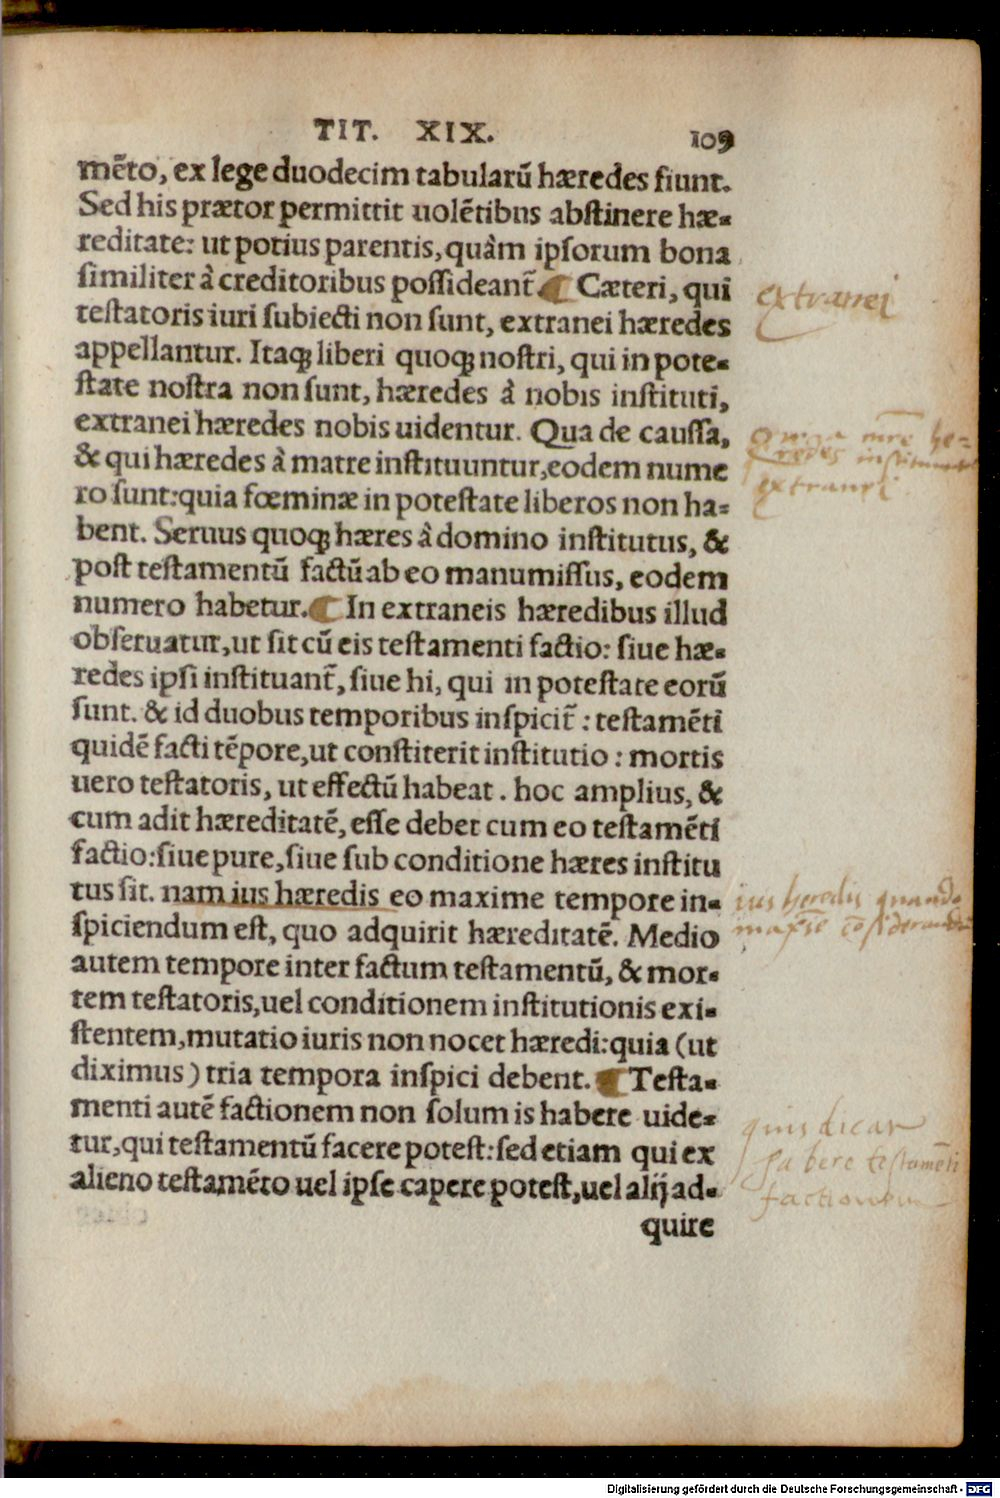 TIT. XIX. 109
mēto, ex lege duodecim tabularū hæredes fiunt.
Sed his prætor permittit uolētibus abstinere hæ=
reditate: ut potius parentis, quàm ipsorum bona
similiter à creditoribus possideant̃. ¶ Cæteri, qui
extranei
testatoris iuri subiecti non sunt, extranei hæredes
appellantur. Itaq; liberi quoq; nostri, qui in pote=
state nostra non sunt, hæredes à nobis instituti,
extranei hæredes nobis uidentur. Qua de caussa,
& qui hæredes à matre instituuntur, eodem nume
he=
redes
extranei
ro sunt: quia fœminæ in potestate liberos non ha=
bent. Seruus quoq; hæres à domino institutus, &
post testamentū factū ab eo manumissus, eodem
numero habetur. ¶ In extraneis hæredibus illud
obseruatur, ut sit cū eis testamenti factio: siue hæ=
redes ipsi instituant̃, siue hi, qui in potestate eorū
sunt. & id duobus temporibus inspicit̃: testamēti
quidē facti tēpore, ut constiterit institutio: mortis
uero testatoris, ut effectū habeat. hoc amplius, &
cum adit hæreditatē, esse debet cum eo testamēti
factio: siue pure, siue sub conditione hæres institu
tus sit. nam ius hæredis eo maxime tempore in=
ius heredis quando
spiciendum est, quo adquirit hæreditatē. Medio
autem tempore inter factum testamentū, & mor=
tem testatoris, uel conditionem institutionis exi=
stentem, mutatio iuris non nocet hæredi: quia (ut
diximus) tria tempora inspici debent. ¶ Testa=
menti autē factionem non solum is habere uide=
quis dicatur
tur, qui testamentū facere potest: sed etiam qui ex
habere testamēti
alieno testamēto uel ipse capere potest, uel alij ad=
factionem
quire
Digitalisierung gefördert durch die Deutsche Forschungsgemeinschaft - DFG